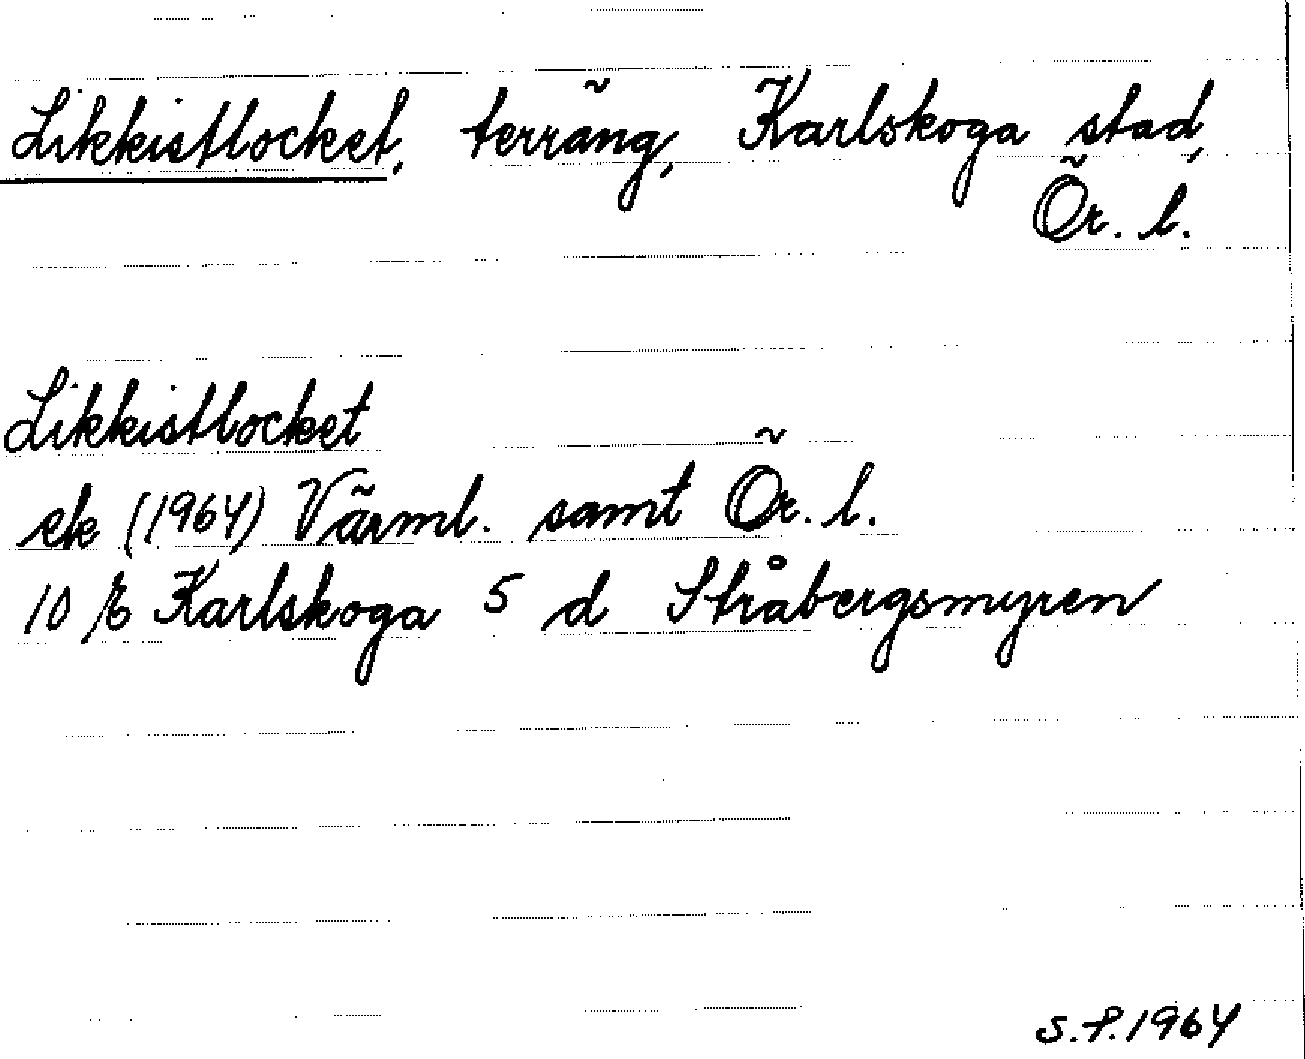 Likkistlocket, terräng, Karlskoga stad,
Ör. l.
Likkistlocket
ek (1964) Värml. samt Ör. l.
10 E Karlskoga 5 d Stråbergsmyren
S.F. 1964